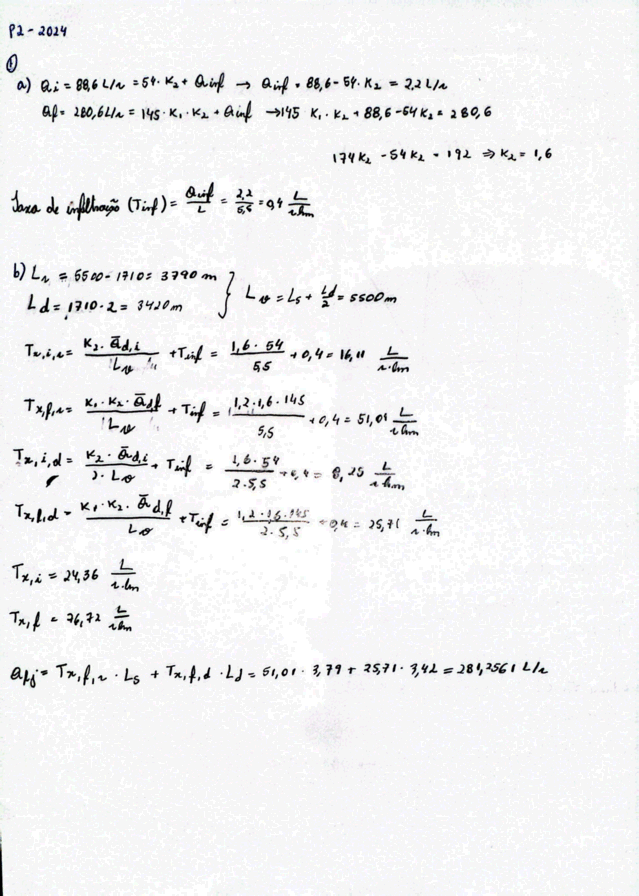 P2-2024
①
a) Qi = 88,6 L/s = 54·K₂ + Qinf → Qinf = 88,6-54·K₂ = 2,2 L/s
Qf = 280,6 L/s = 145·K₁·K₂ + Qinf → 145 K₁·K₂ + 88,6-54K₂ = 280,6
174K₂ - 54K₂ = 192 ⇒ K₂ = 1,6
Taxa de infiltração (Tinf) = Qinf/L = 2,2/5,5 = 0,4 L/s·km
b) Ls = 5500-1710 = 3790 m
Ld = 1710·2 = 3420 m } Lv = Ls + Ld/2 = 5500m
Tx,i,s = K₂·Q̄d,i/Lv + Tinf = 1,6·54/5,5 + 0,4 = 16,11 L/s·km
Tx,f,s = K₁·K₂·Q̄d,f/Lv + Tinf = 1,2·1,6·145/5,5 + 0,4 = 51,01 L/s·km
Tx,i,d = K₂·Q̄d,i/2·Lv + Tinf = 1,6·54/2·5,5 + 0,4 = 8,25 L/s·km
Tx,f,d = K₁·K₂·Q̄d,f/Lv + Tinf = 1,2·1,6·145/2·5,5 + 0,4 = 25,71 L/s·km
Tx,i = 24,36 L/s·km
Tx,f = 76,72 L/s·km
Qfj = Tx,f,s·Ls + Tx,f,d·Ld = 51,01·3,79 + 25,71·3,42 = 281,2561 L/s